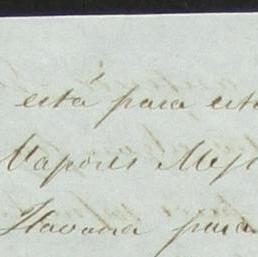 está para est
Vapores Mej
Havana para